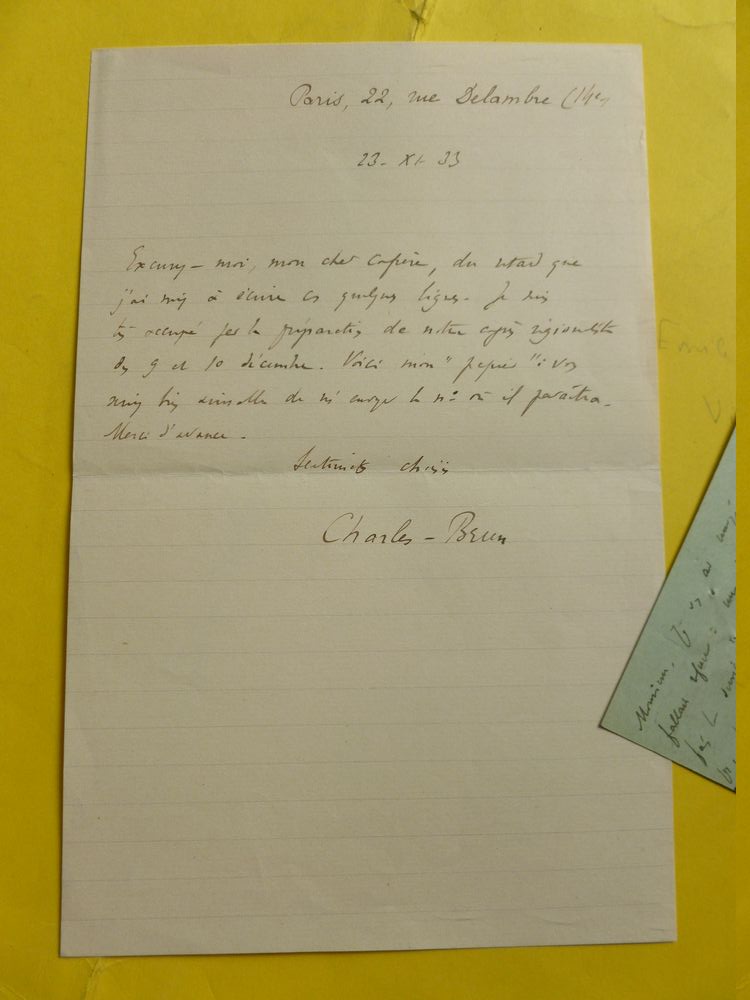 Paris, 22, rue Delambre (14e)
23-XI-33
Excusez-moi, mon cher Confrère, du retard que
j'ai mis à écrire ces quelques lignes. Je suis
très occupé par la préparation de notre congrès régionaliste
des 9 et 10 décembre. Voici mon "papier": vous
seriez bien aimable de m'envoyer le nº où il paraîtra.
Merci d'avance.
Charles-Brun
Monsieur,